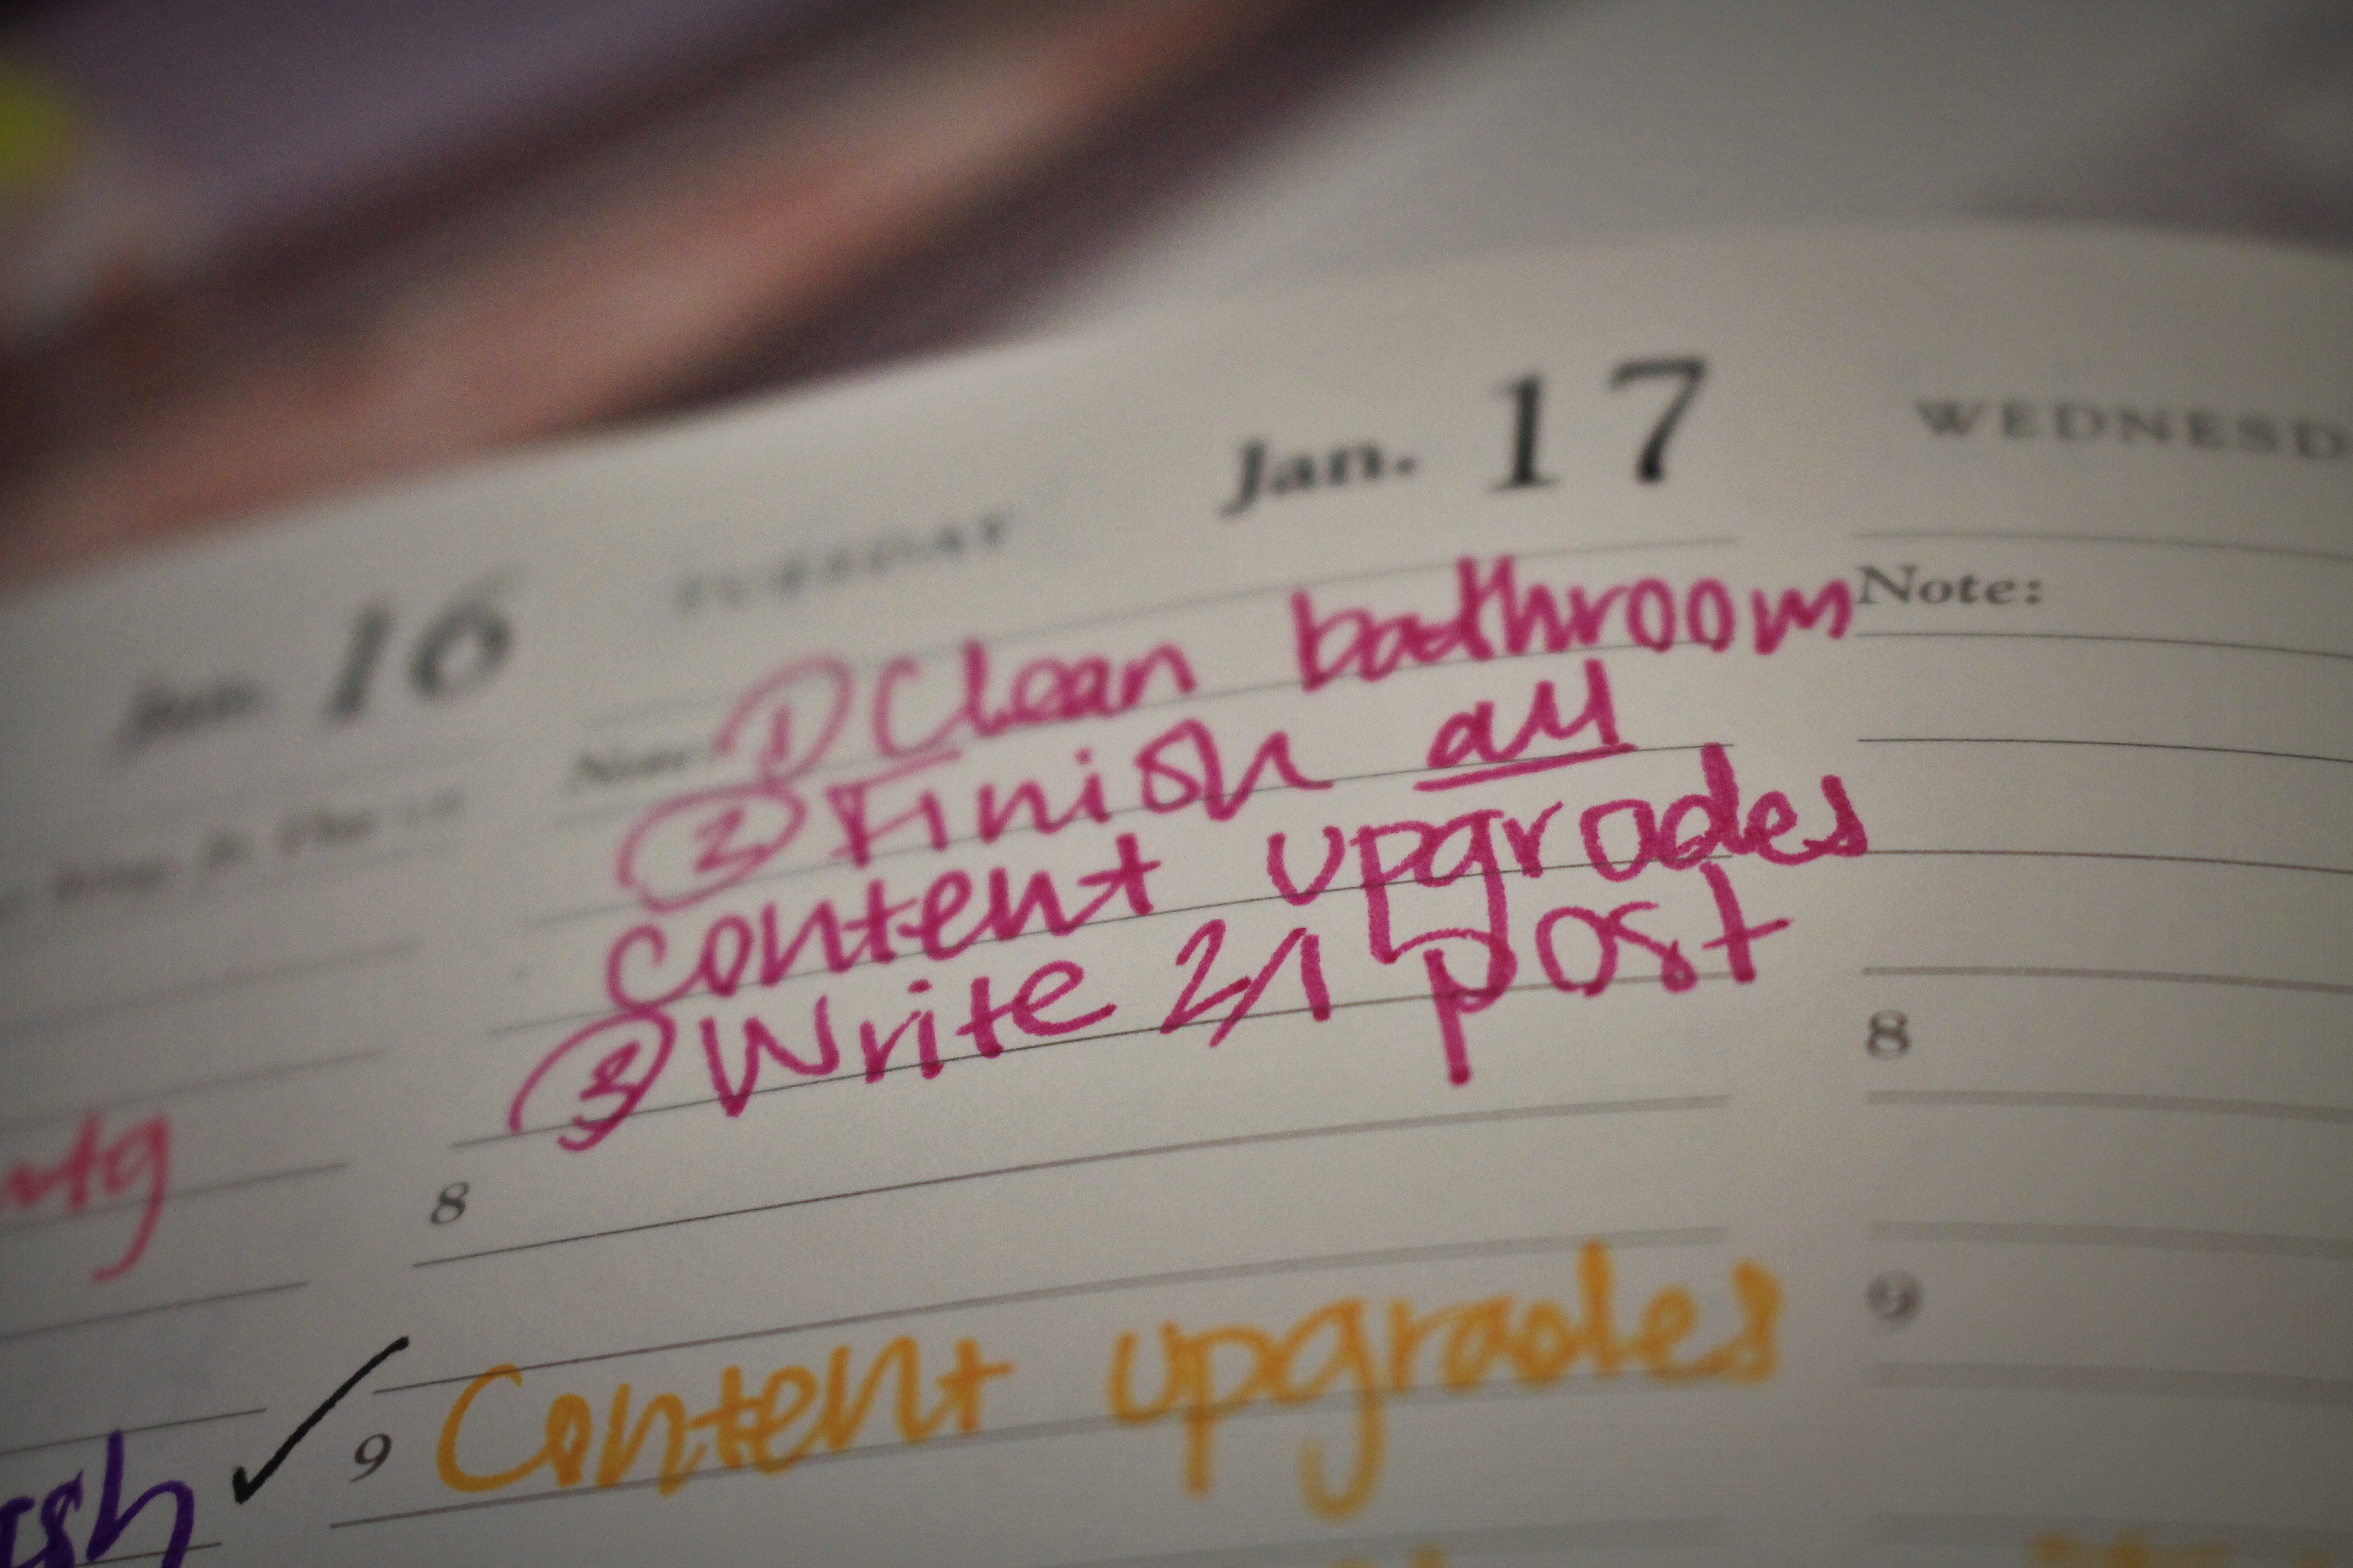 Jan. 16
TUESDAY
Jan. 17
WEDNESD
Note: ① Clean bathroom
② Finish all
content upgrades
③ Write 2/1 post
8
9 Content upgrades
Note:
8
9
mtg
✓